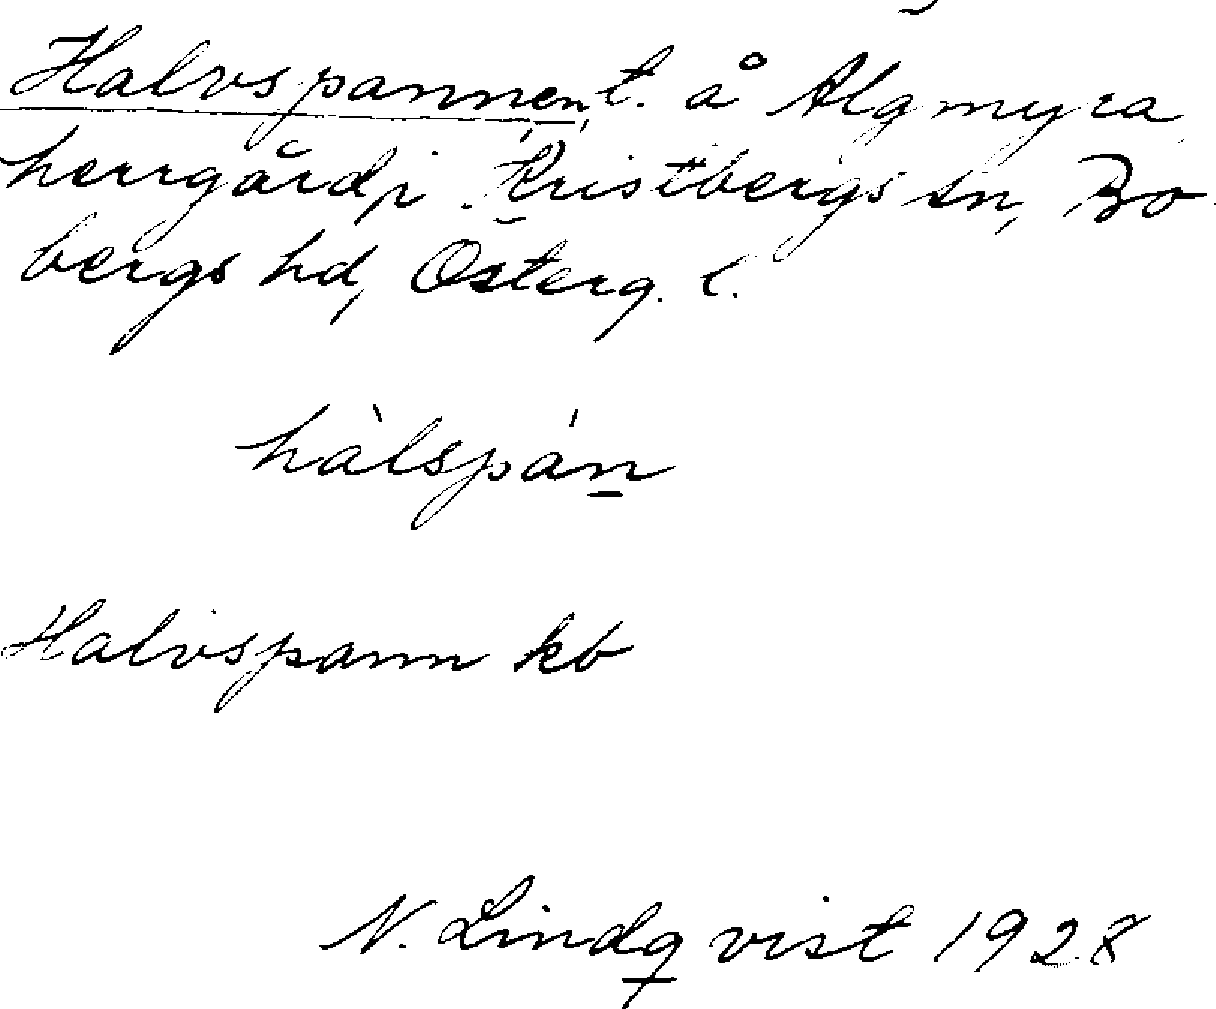 Halvspannen, t. å Algmyra
herrgård, i Kristbergs sn, Bo-
bergs hd, Österg. l.
hàlspán
Halvspann kb
N. Lindqvist 1928